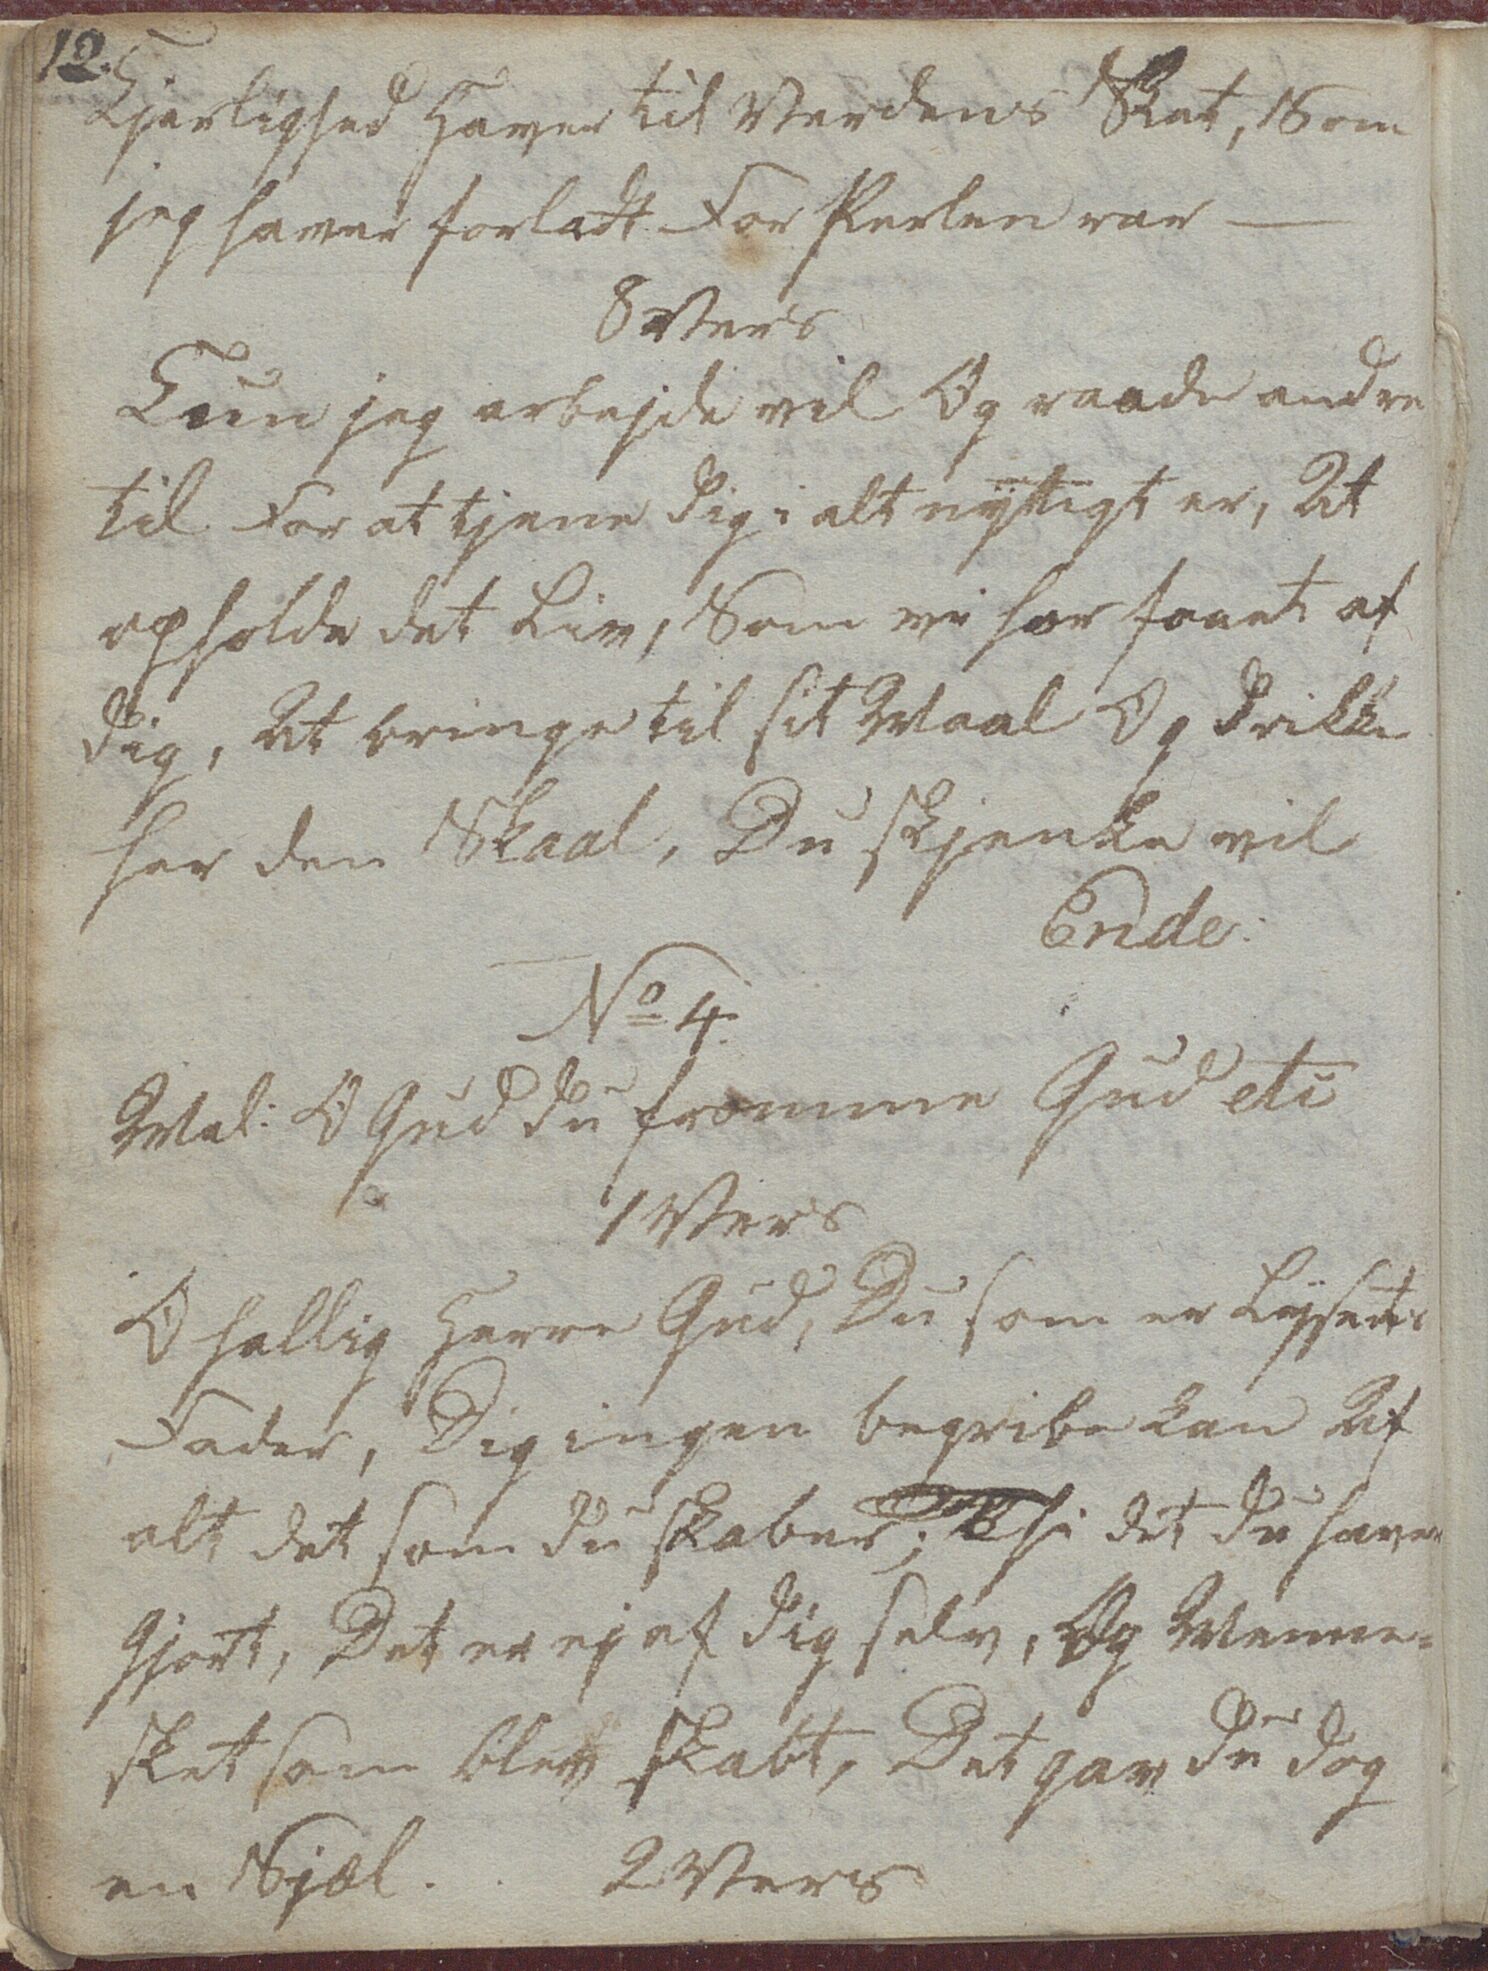 12.
Kjerlighed Haver til Verdens Skat, Som
jeg haver forladt For Perlen rar —
8 Vers
Kun jeg arbejde vil Og raade andre
til For at tjene dig i alt nyttigt er, At
opholde det Liv, Som vi har faaet af
dig, At bringe til sit Maal Og drikke
her den Skaal, Du skjenke vil
Ende:
No 4.
Mel: O Gud du fromme Gud etc
1 Vers
O hellig Herre Gud, Du som er Lysets
Fader, Dig ingen begribe kan Af
alt det som du skaber; Thi det du haver
gjort, Det er ej af dig selv, Og Menne-
sket som blev skabt, Det gav du dog
en Sjæl. 2 Vers